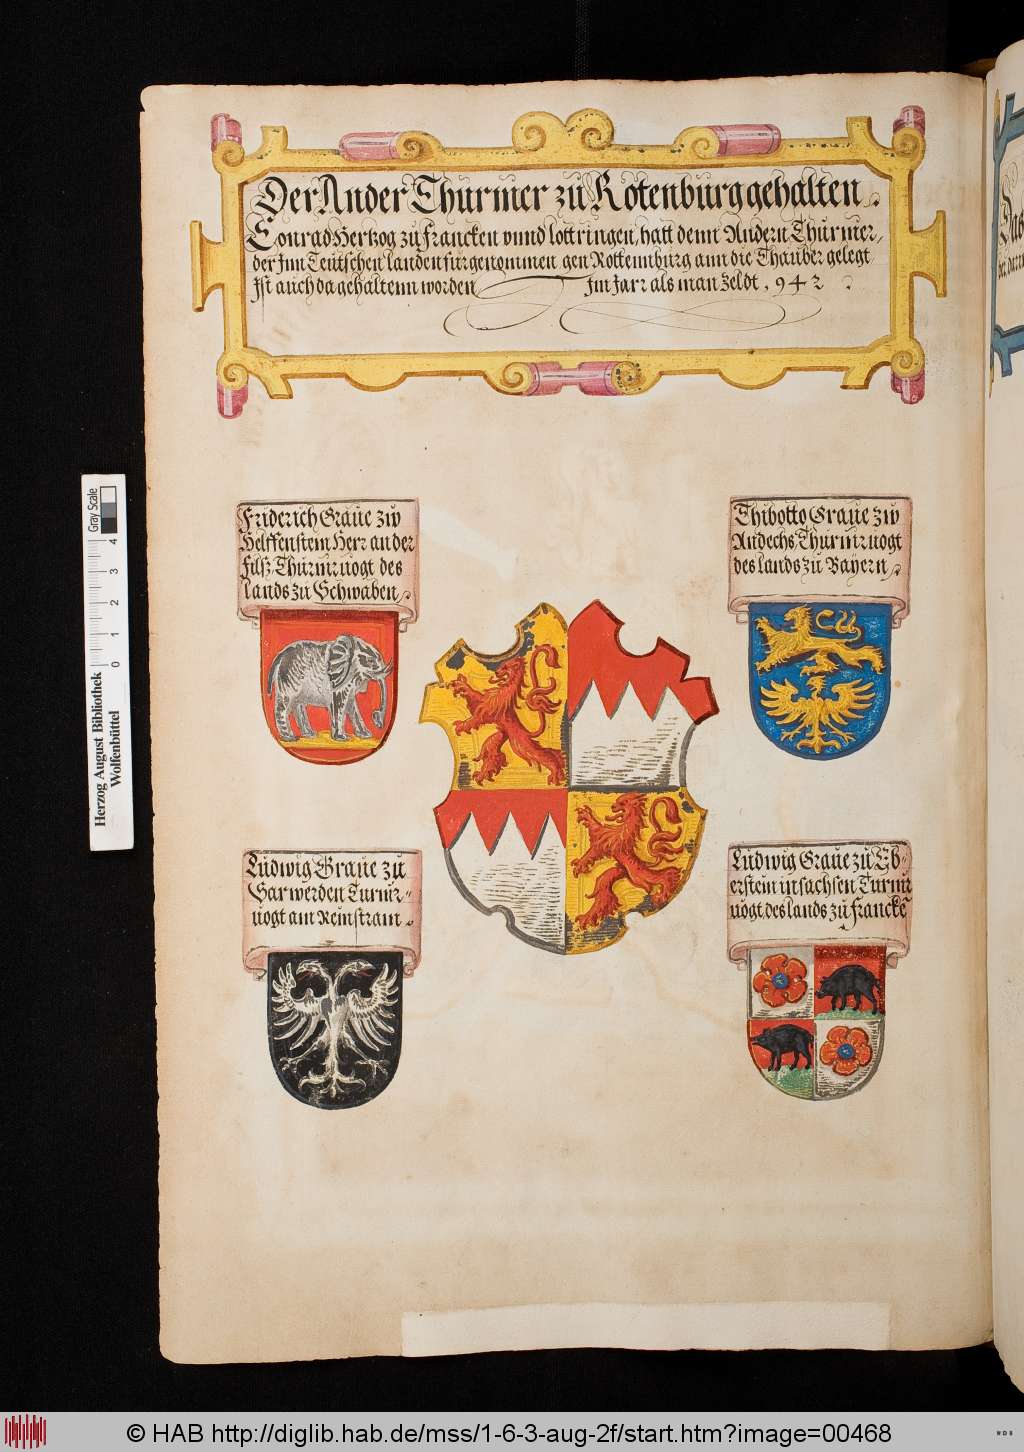 Der Ander Thurnier zu Rotenburg gehalten.
Conrad Hertzog zu francken vnnd lottringen, hatt denn Andern Thurnier,
der Inn Teutschen landen furgenommen gen Rottennburg ann die Thauber gelegt
Ist auch da gehaltenn worden Im Jarr als man Zeldt, 942
Friderich Graue zw
Helffenstein Herr an der
Filß Thurnruogt des
lands zu Schwaben
Thibotto Graue zw
Andechs Thurnruogt
des lands zu Bayern
Ludwig Graue zu
Sarwerden Turnir-
uogt am Reinstram
Ludwig Graue zu Eb-
erstein in sachsen Turnir
uogt des lands zu francke
Herzog August Bibliothek
Wolfenbüttel
0 1 2 3 4
Gray Scale
© HAB http://diglib.hab.de/mss/1-6-3-aug-2f/start.htm?image=00468